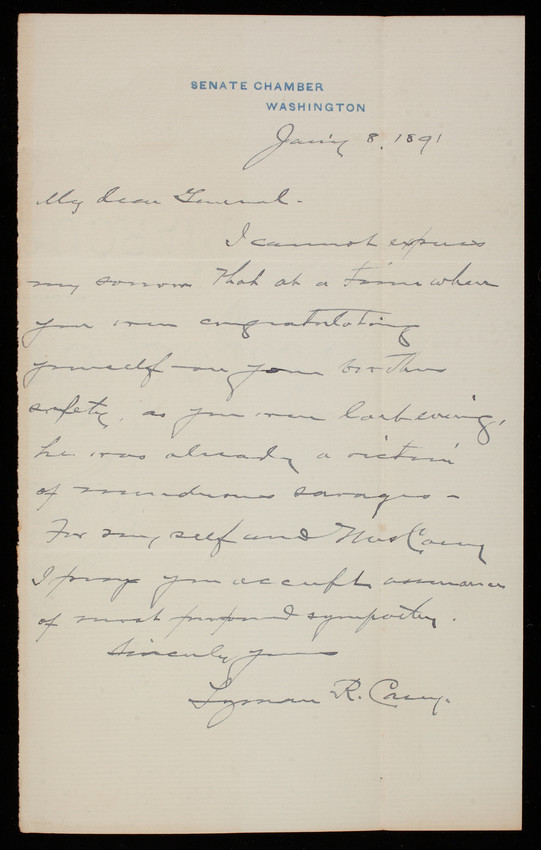 SENATE CHAMBER
WASHINGTON
Jan'y 8. 1891
My dear General -
I cannot express
my sorrow that at a time when
you were congratulating
yourself on your brothers
safety, as you were last evening,
he was already a victim
of murderous savages -
For myself and Mrs Casey
I pray you accept assurances
of most profound sympathy.
Sincerely yours
Lyman R. Casey.